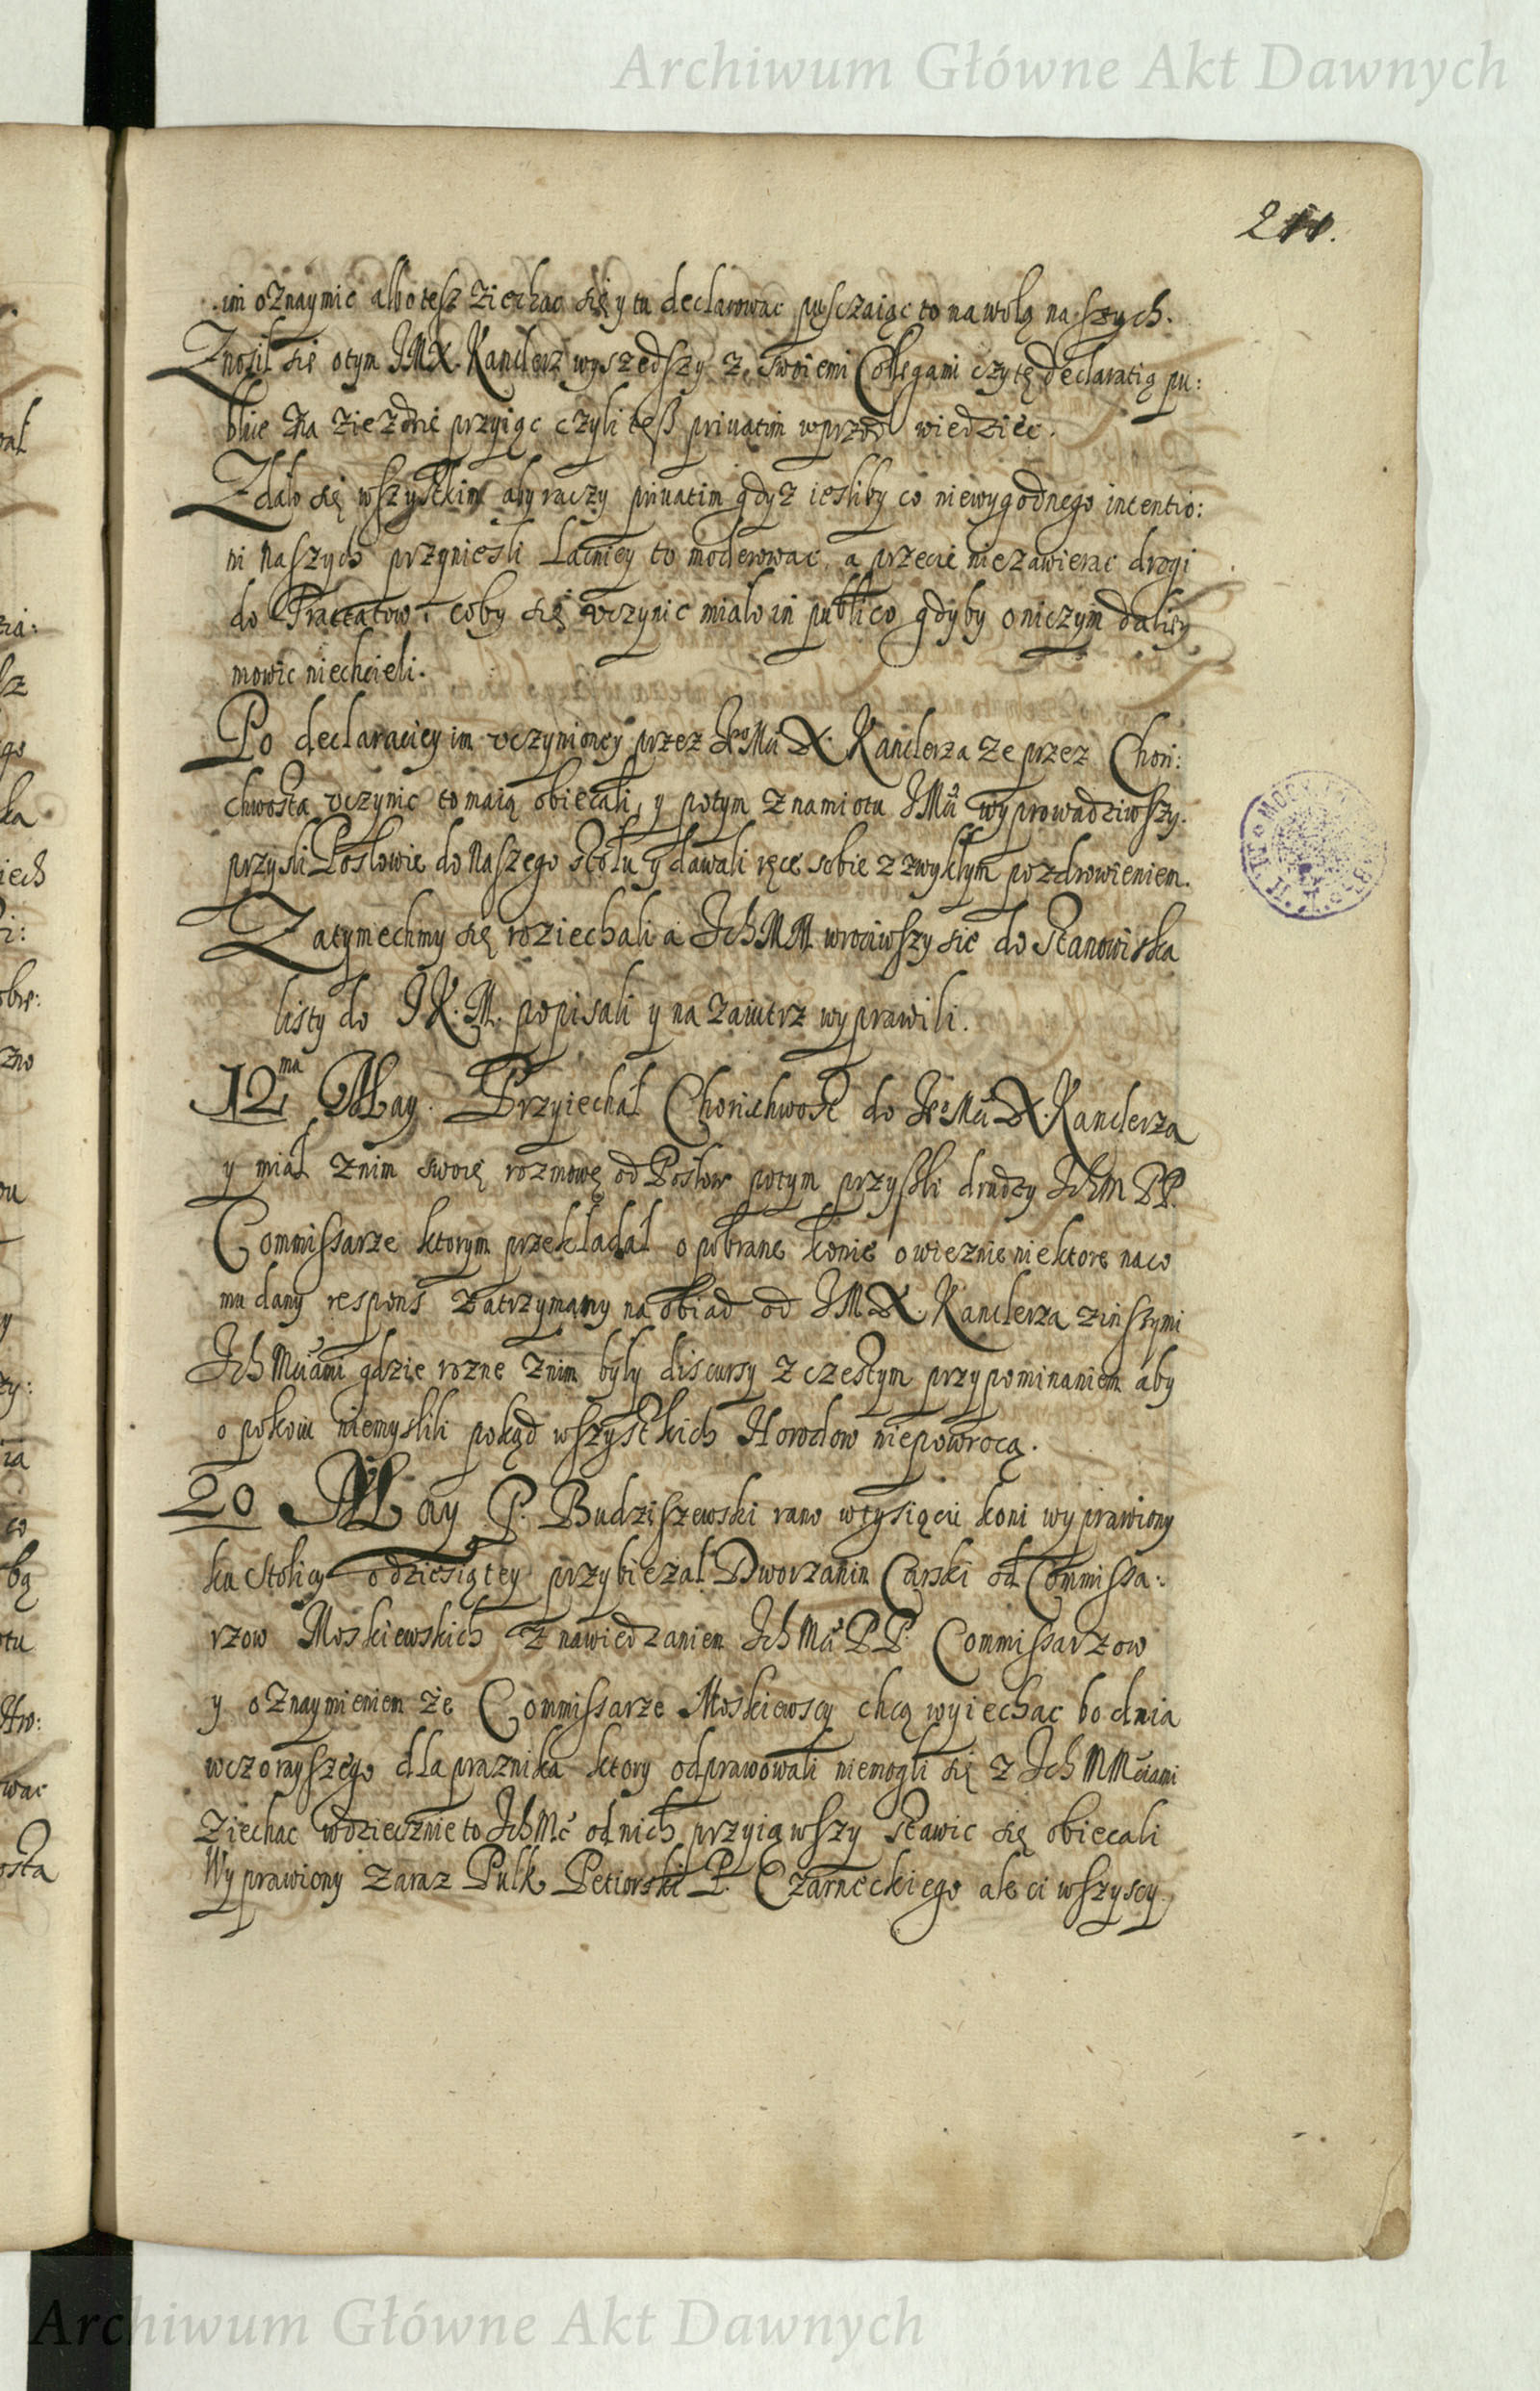 Archiwum Główne Akt Dawnych
im oznaymic albo tesz ziechac się y tu declarowac pusczaiąc to na wolą naszych.
Znosil się o tym JMX. Kanclerz wyszedszy z swoiemi Collegami czy tę declaratią pu:
blice na ziezdzie przyiąc czyli teß priuatim wprzod wiedziec.
Zdało się wszystkim aby raczy priuatim gdyz iesliby co niewygodnego intentio:
ni naszych przyniesli Lacniey to moderowac, a przecie niezawierac drogi
do Tractatow. coby się vczynic miało in publico gdyby o niczym daliey
mowic niechcieli.
Po declaraciey im vczynioney przez JeoMci X. Kanclerza ze przez Chon:
chwosta vczynic to maią obiecali, y potym z namiotu JMci wyprowadziwszy.
przysli Posłowie do naszego stołu y dawali ręce sobie z zwykłym pozdrowieniem.
Zatymechmy się roziechali a Ich MM wrociwszy się do Stanowiska
listy do J.K.M. popisali y na zaiutrz wyprawili.
12ma May. Przyiechał Chonichwost do JeoMci X. Kanclerza
y miał z nim swoię rozmowę od Posłow potym przyszli drudzy IchM PP.
Commissarze ktorym przekładał o pobrane konie o wieznie niektore na co
mu dany respons zatrzymany na obiad od JMX. Kanclerza z inszymi
Ich Mciami gdzie rozne z nim były discursy z czestym przypominaniem aby
o pokoiu niemyslili pokąd wszystkich Horodow niepowrocą.
20 May P. Budziszewski rano w tysiącu koni wyprawiony
ku Stolicy o dziesiątey przybiezał Dworzanin Carski od Commissa:
rzow Moskiewskich z nawiedzaniem Ich Mci PP. Commissarzow
y oznaymieniem że Commissarze Moskiewscy chcą wyiechac bo dnia
wczorayszego dla praznika ktory odprawowali niemogli się z Ich MMciami
ziechac wdziecznie to IchMć od nich przyiąwszy stawic się obiecali
Wyprawiony zaraz Pulk Petiorski P. Czarneckiego ale ci wszyscy
Archiwum Główne Akt Dawnych